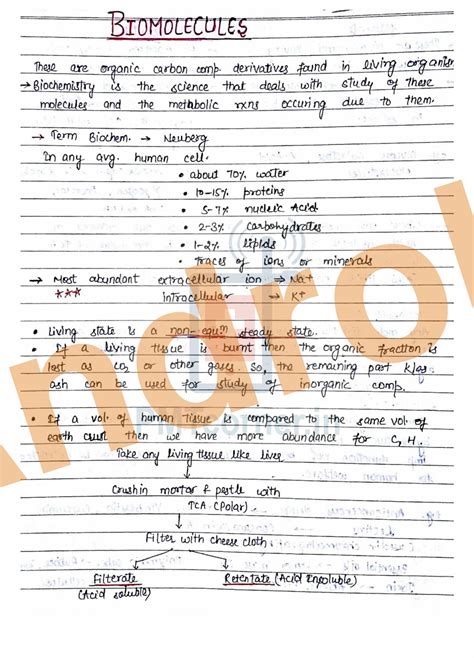 BIOMOLECULES
These are organic carbon comp. derivatives found in living organism
→ Biochemistry is the science that deals with study of these
molecules and the metabolic rxns occuring due to them.
→ Term Biochem. → Neuberg
In any avg. human cell.
• about 70% water
• 10-15% proteins
• 5-7% nucleic Acid
• 2-3% carbohydrates
• 1-2% lipids
• traces of ions or minerals
→ Most abundant extracellular ion ⇒ Na+
*** intracellular → K+
• Living state is a non-equm steady state.
• If a living tissue is burnt then the organic fraction is
lost as CO2 or other gases. So, the remaining part k/as
ash can be used for study of inorganic comp.
• If a vol. of human tissue is compared to the same vol. of
earth crust then we have more abundance for C, H.
Take any living tissue like liver
Crush in mortar & pestle with
TCA (Polar).
Filter with cheese cloth.
Filterate Retentate (Acid insoluble)
(Acid soluble)